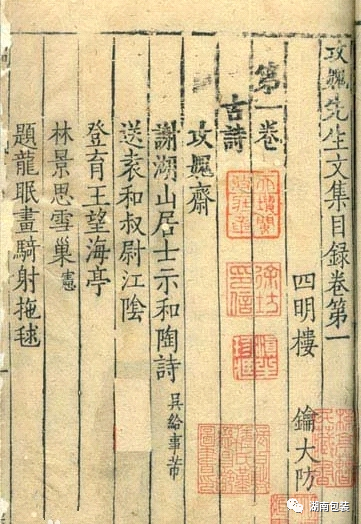 攻媿先生文集目錄卷第一
四明樓 鑰大防
第一卷
古詩
攻媿齋
謝湖山居士示和陶詩 吳給事芾
送袁和叔尉江陰
登育王望海亭
林景思雪巢 憲
題龍眠畫騎射抱毬
湖南包装